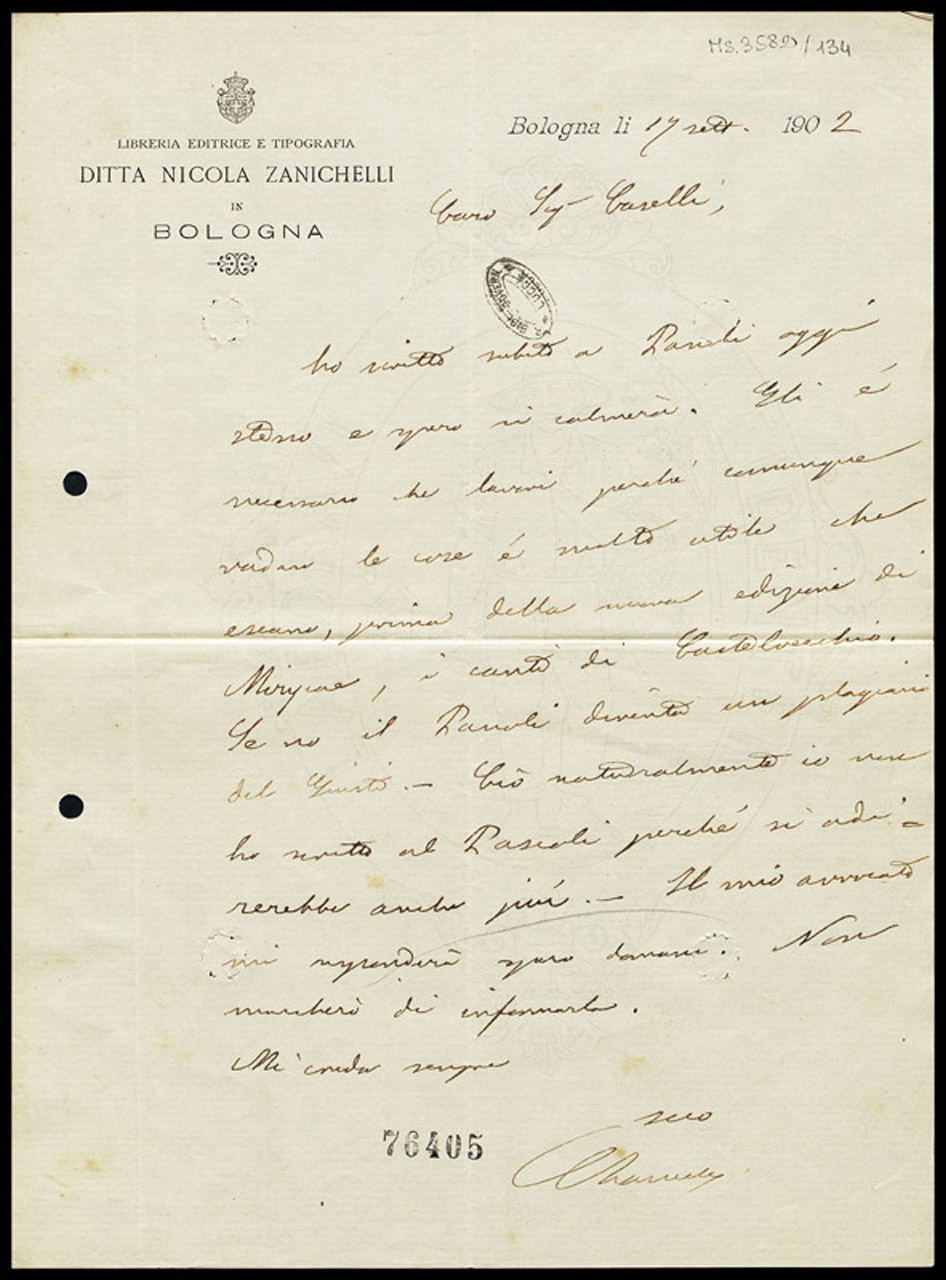 Ms. 3582/134
LIBRERIA EDITRICE E TIPOGRAFIA
DITTA NICOLA ZANICHELLI
IN
BOLOGNA
Bologna li 17 sett. 1902
Caro Sig Caselli,
R. BIBL. GOVERN. LUCCA
ho scritto subito a Pascoli oggi
stesso e spero si calmerà. Gli è
necessario che lavori perché comunque
vadano le cose é molto utile che
escano, prima della nuova edizione di
Mirycae, i canti di Castelvecchio.
Se no il Pascoli diventa un plagiario
del Giusti. — Ciò naturalmente io non
ho scritto al Pascoli perché si adi=
rerebbe anche più. — Il mio avvocato
mi risponderà spero domani. Non
mancherò di informarla.
Mi creda sempre
suo
76405